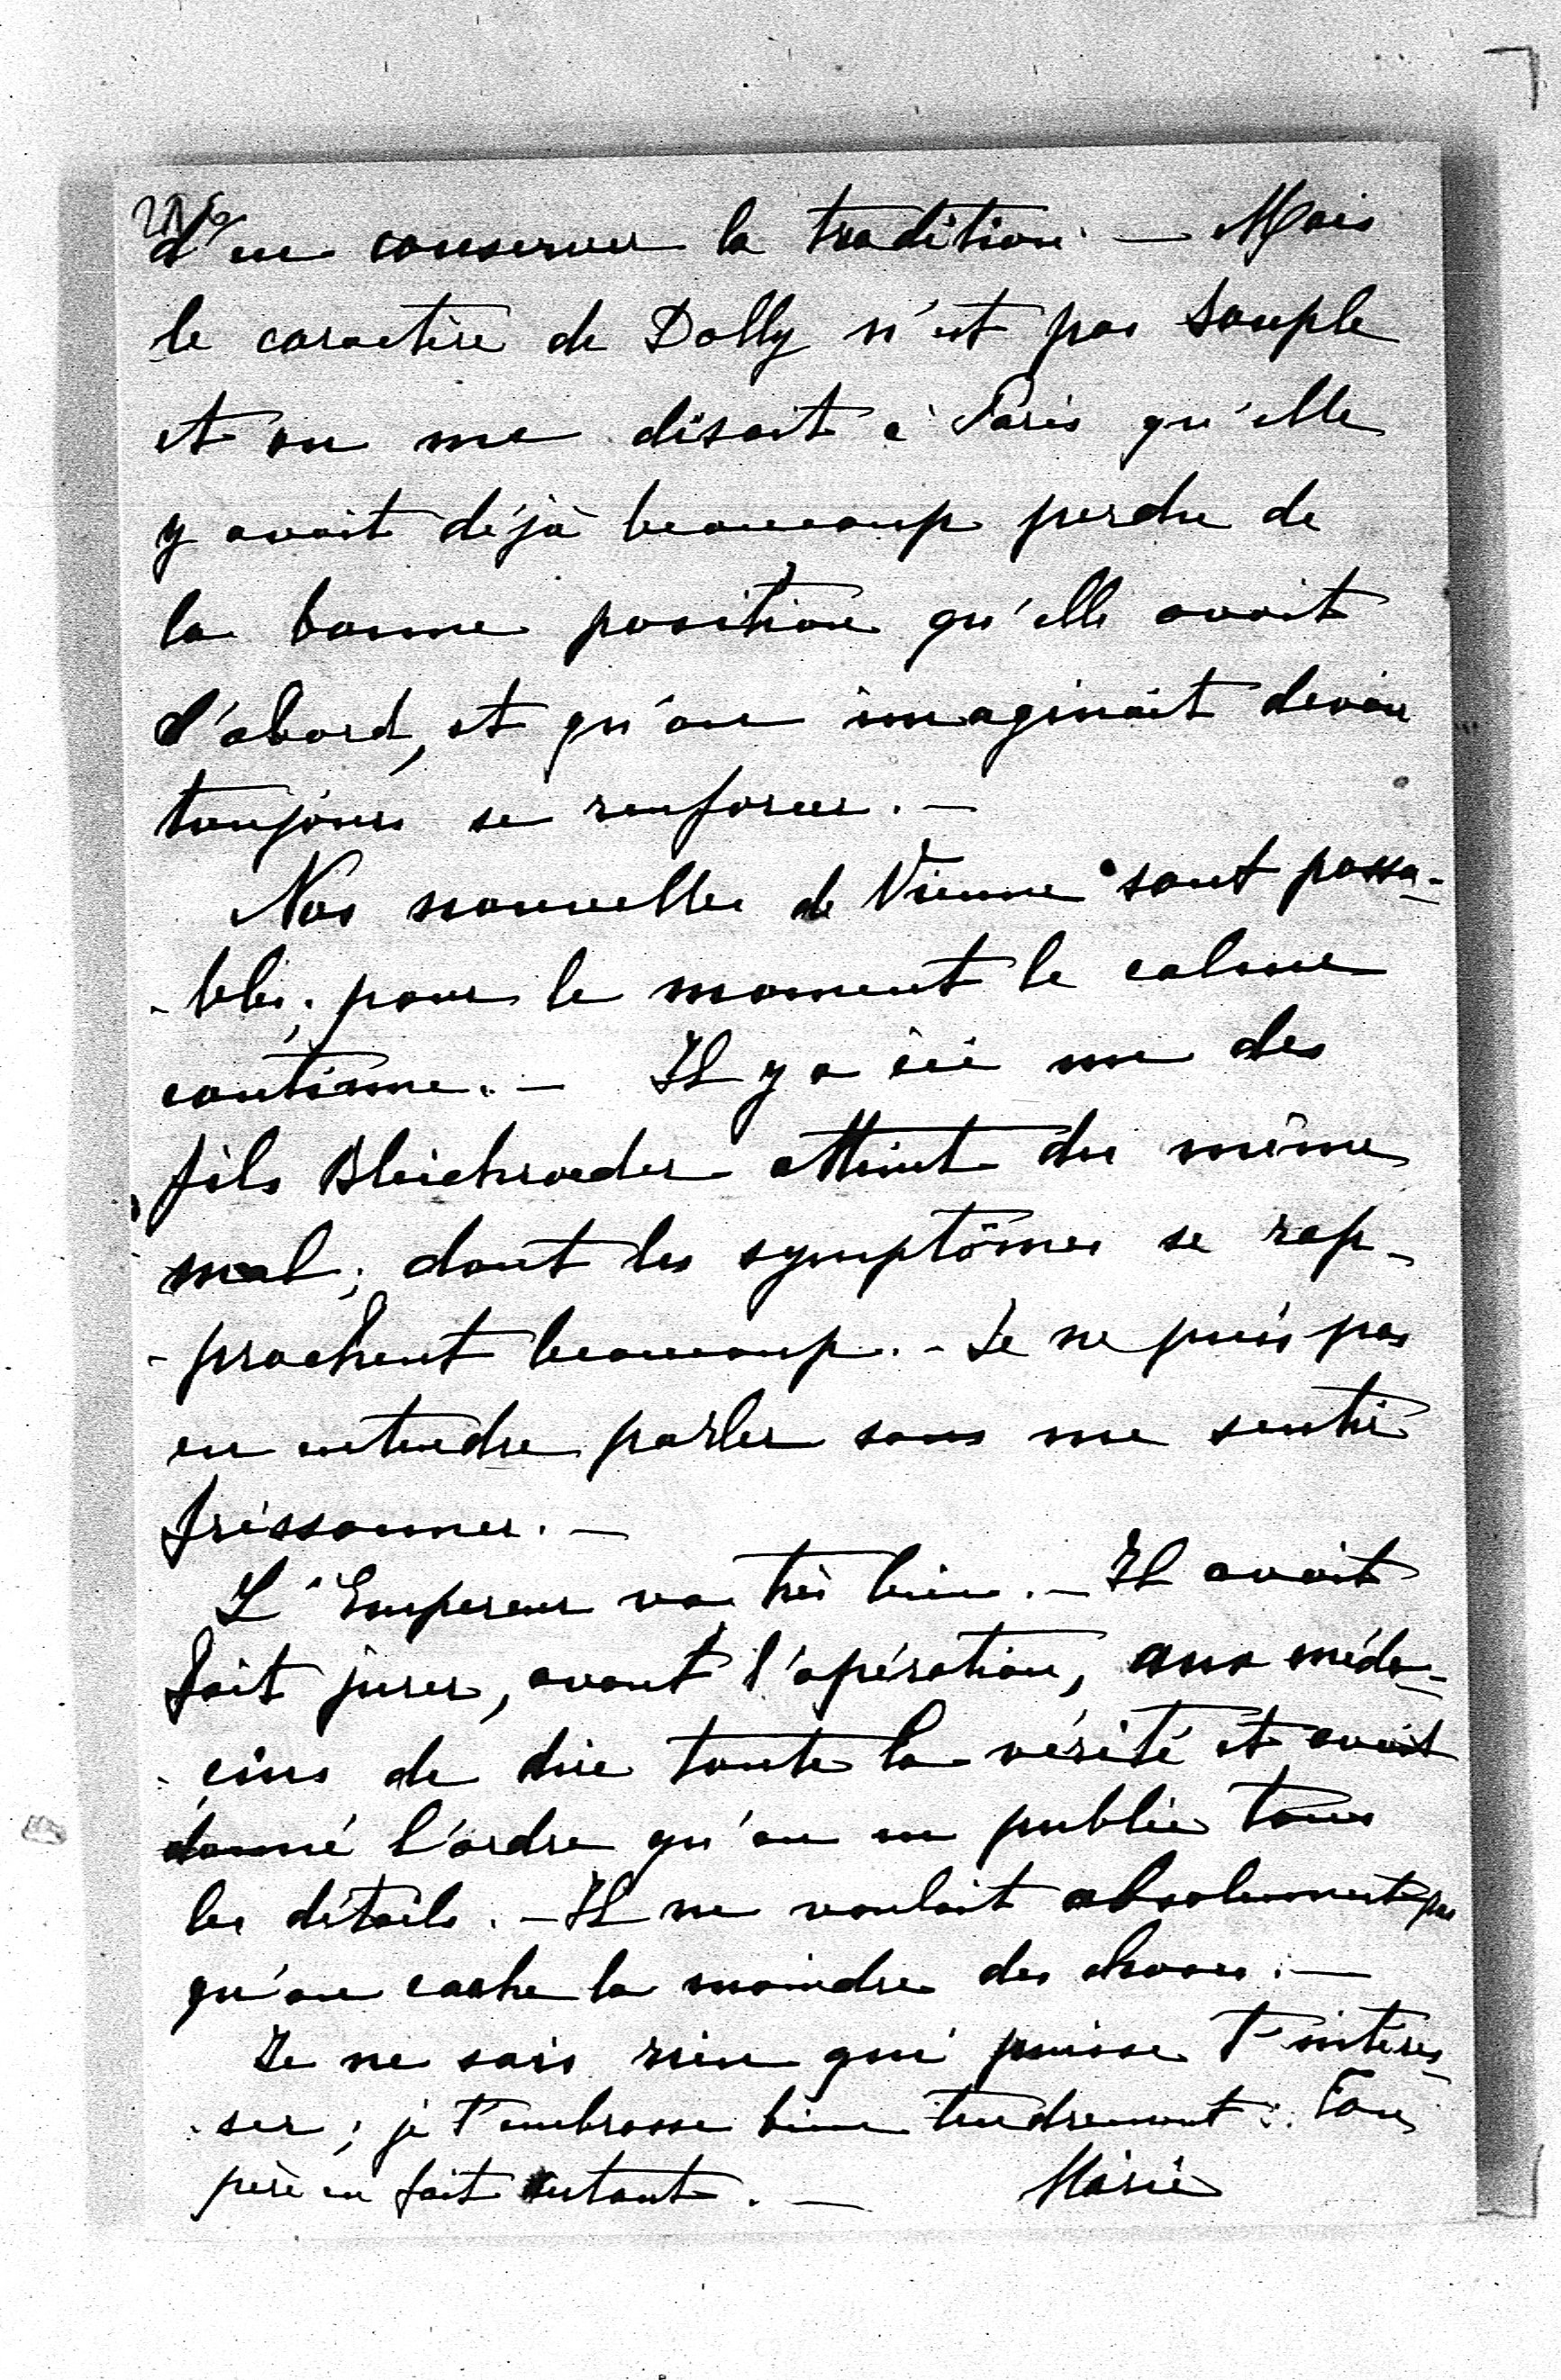 d'en conserver la tradition. — Mais
le caractère de Dolly n'est pas souple
et on me disait à Paris qu'elle
y avait déjà beaucoup perdu de
la bonne position qu'elle avait
d'abord, et qu'on imaginait devoir
toujours se renforcer. —
Nos nouvelles de Vienne sont passa-
-bles; pour le moment le calme
continue. — Il y a ici un des
fils Bleichroeder atteint du même
mal; dont les symptômes se rap-
-prochent beaucoup. - Je ne puis pas
en entendre parler sans me sentir
frissonner. —
L'Empereur va très bien. — Il avait
fait jurer, avant l'opération, aux méde-
-cins de dire toute la vérité et avait
donné l'ordre qu'on en publie tous
les détails. - Il ne voulait absolument pas
qu'on cache la moindre des choses. —
Je ne sais rien qui puisse t'intéres-
-ser; je t'embrasse bien tendrement. Ton
père en fait autant. — Marie